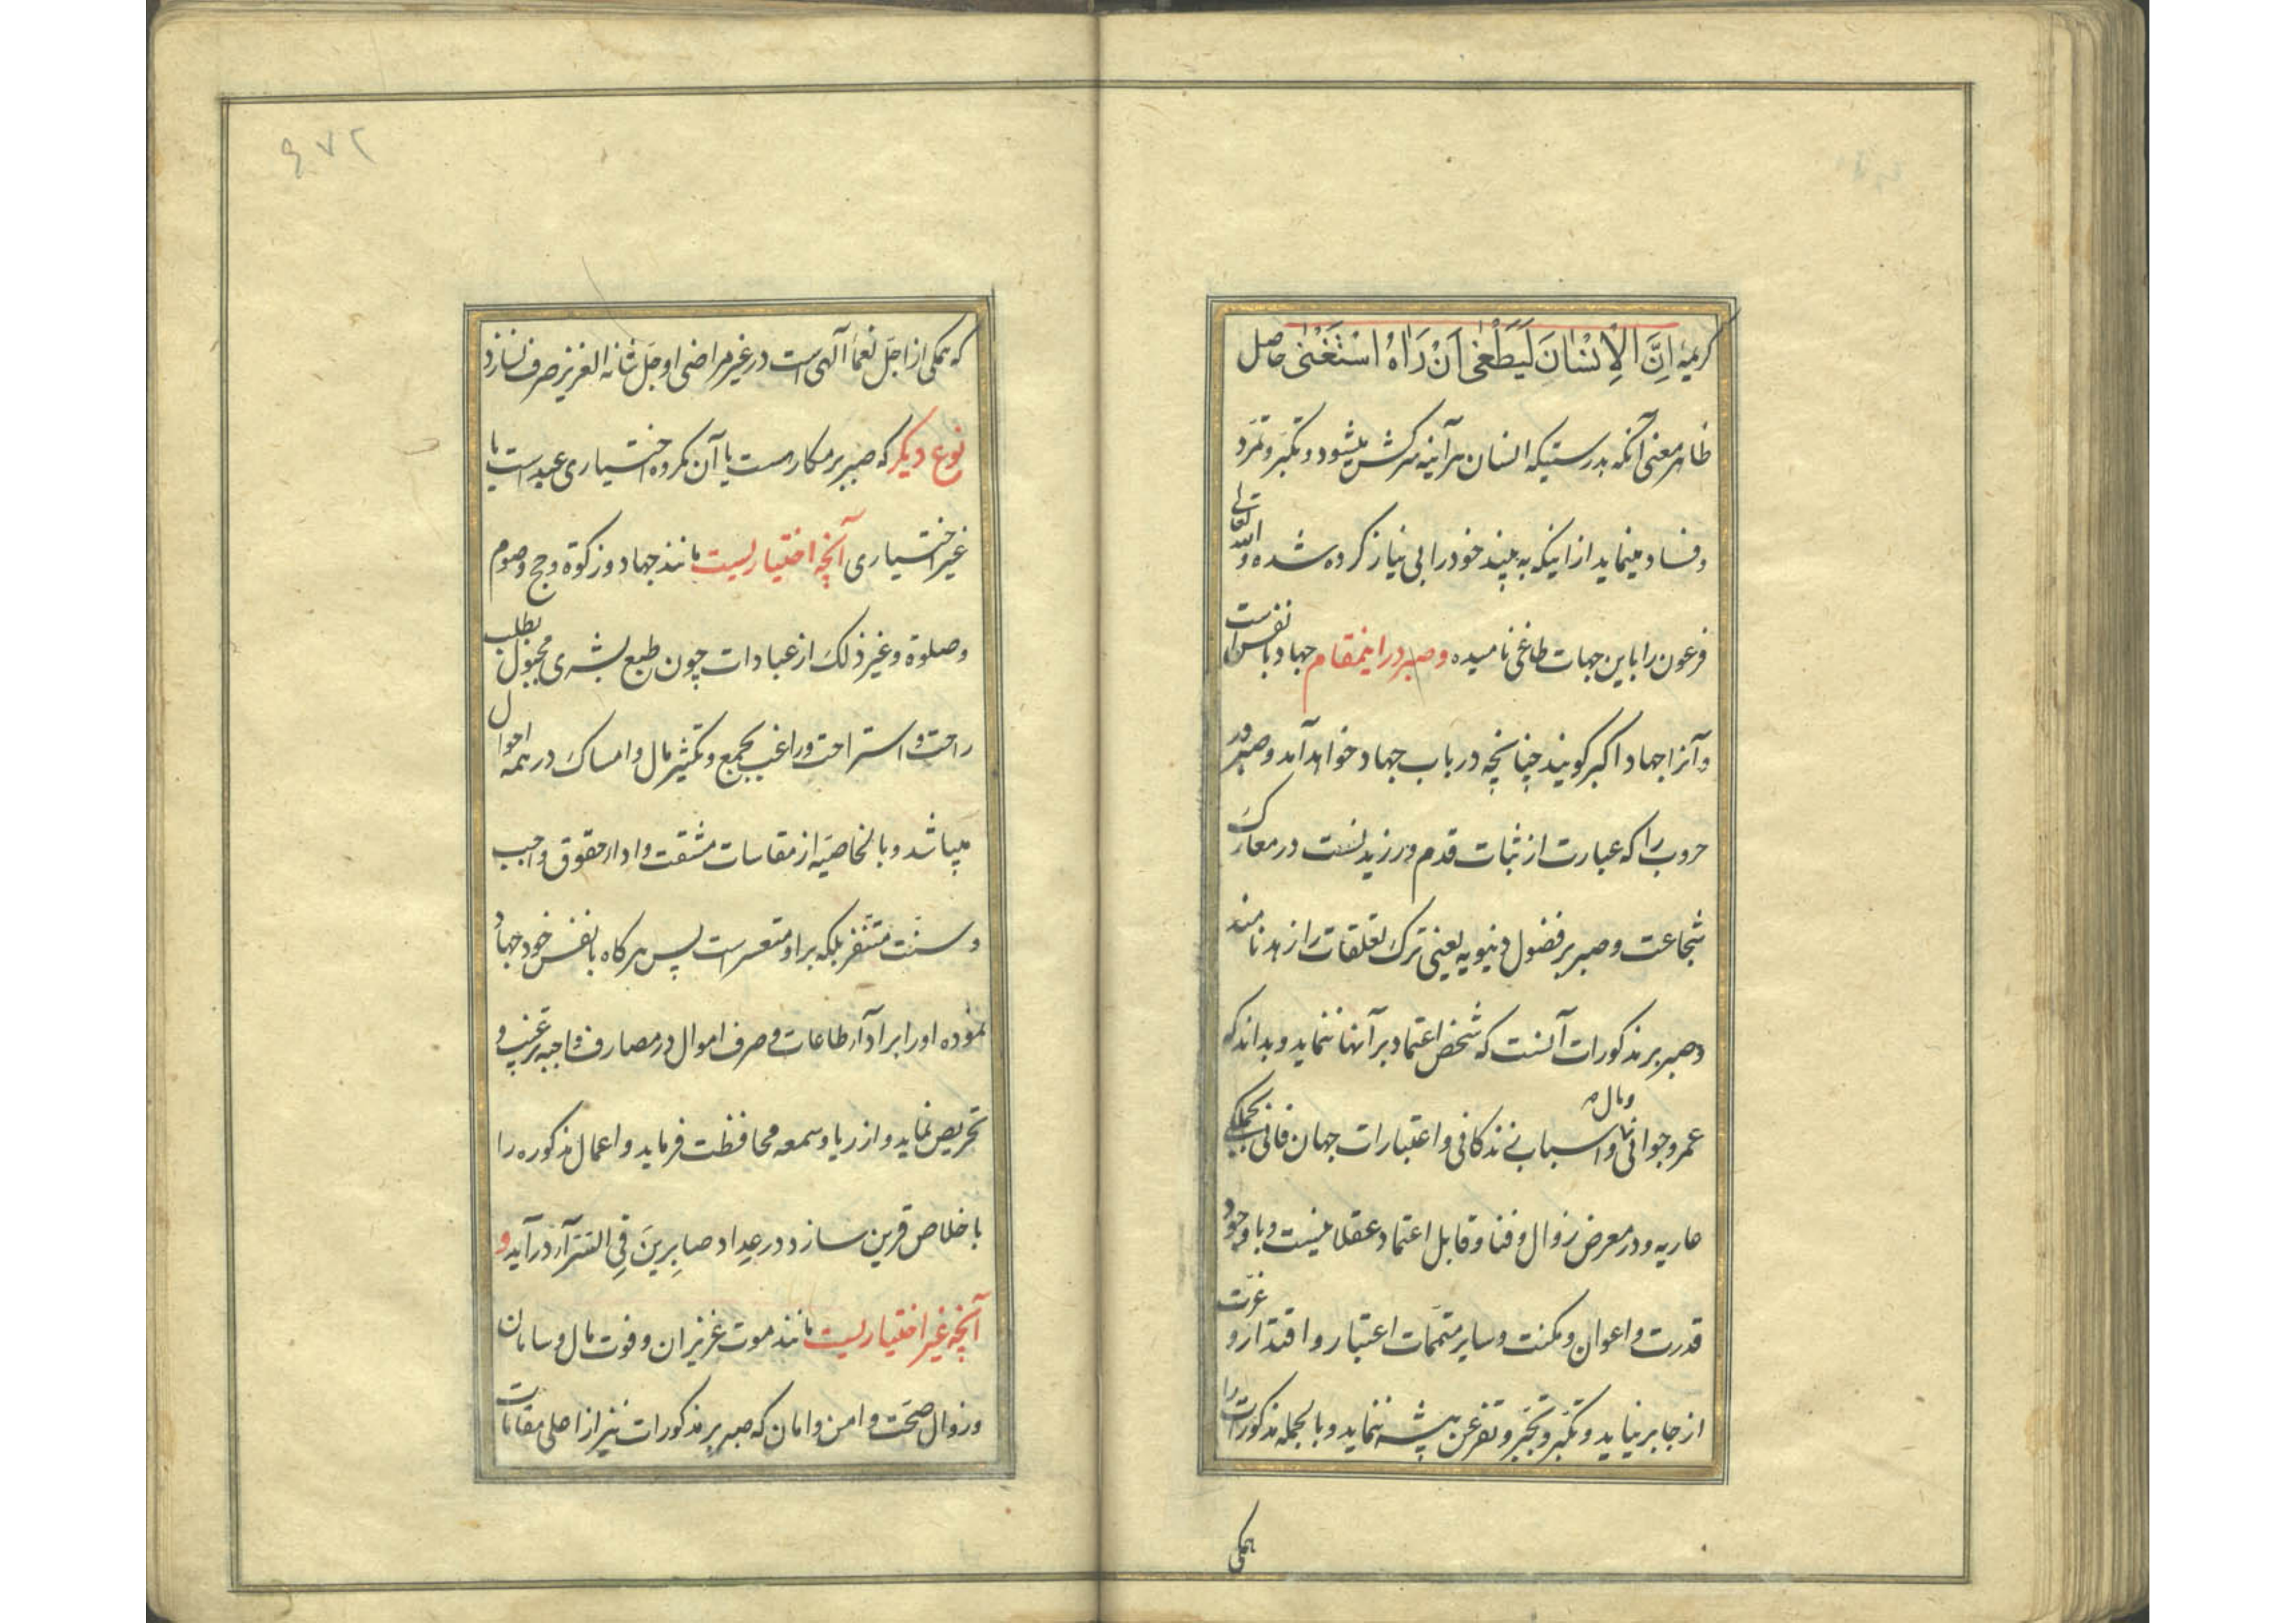 کریمهٔ اِنَّ الْاِنْسٰانَ لَیَطْغٰی اَنْ رَاٰهُ اسْتَغْنٰی حاصل
ظاهر معنی آنکه بدرستیکه انسان هرآینه سرکش میشود و تکبّر و تمرّد
و فساد مینماید از اینکه به بیند خود را بی نیاز کرده شده و الله تعالی
فرعون را باین جهات طاغی نامیده و صبر در اینمقام جهاد با نفس است
و آنرا جهاد اکبر کویند چنانچه در باب جهاد خواهد آمد و صبر در
حروب را که عبارت از ثبات قدم ورزیدنست در معارک
شجاعت و صبر بر فضول دنیویه یعنی ترک تعلقات را زهد نامند
و صبر بر مذکورات آنست که شخص اعتماد بر آنها ننماید و بداند که
عمر و جوانی و مال و اسباب زندکانی و اعتبارات جهان فانی بجملکی
عاریه و در معرض زوال و فنا و قابل اعتماد عقلا نیست و با وجود
قدرت و اعوان و مکنت و سایر متمّمات اعتبار و اقتدار و عزّت
از جا بر نیاید و تکبّر و تجبّر و تفرعن پیشه ننماید و بالجمله مذکورات را
همکی
۶۷۲
که همکی از اجلّ نعمآ الهی است در غیر مراضی او جلّ شانه العزیز صرف نسازد
نوع دیکر که صبر بر مکاره است یا آن مکروه اختیاری عبد است یا
غیر اختیاری آنچه اختیاریست مانند جهاد و زکوة و حج و صوم
و صلوة و غیر ذلک از عبادات چون طبع بشری مجبول بطلب
راحت و استراحت و راغب بجمع و تکثیر مال و امساک در همه احوال
میباشد و بالخاصیّه از مقاسات مشقت و ادار حقوق واجب
و سنّت متنفر بلکه بر او متعسر است پس هرکاه با نفس خود جهاد
نموده او را بر ادآر طاعات و صرف اموال در مصارف واجبه ترغیب و
تحریص نماید و از ریا و سمعه محافظت فرماید و اعمال مذکوره را
با خلاص قرین سازد در عداد صابِرینَ فِی الضّرآر درآید و
آنچه غیر اختیاریست مانند موت عزیزان و فوت مال و سامان
و زوال صحّت و امن و امان که صبر بر مذکورات نیز از اعلی مقامات